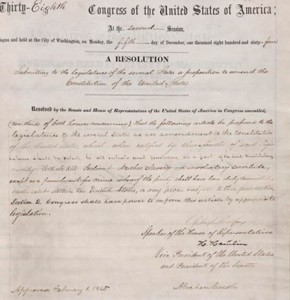 Thirty-Eighth Congress of the United States of America;
At the second Session,
Begun and held at the City of Washington, on Monday, the fifth day of December, one thousand eight hundred and sixty-four
A RESOLUTION
Submitting to the legislatures of the several States a proposition to amend the
Constitution of the United States.
Resolved by the Senate and House of Representatives of the United States of America in Congress assembled,
(two thirds of both houses concurring) That the following article be proposed to the
legislatures of the several States as an amendment to the Constitution
of the United States, which, when ratified by three fourths of said
shall be valid, to all intents and purposes, as a part of the
Article XIII. Section 1. Neither slavery nor involuntary servitude,
except as a punishment for crime whereof the party shall have been duly
convicted, shall exist within the United States, or any place subject to their jurisdiction.
Section 2. Congress shall have power to enforce this article by appropriate
legislation.
Schuyler Colfax
Speaker of the House of Representatives
H. Hamlin
Vice President of the United States
and President of the Senate
Approved February 1, 1865
Abraham Lincoln